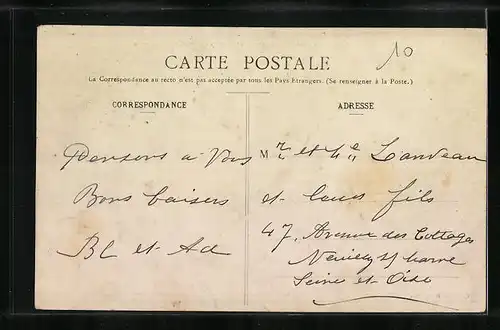 10
CARTE POSTALE
La Correspondance au recto n'est pas acceptée par tous les Pays Etrangers. (Se renseigner à la Poste.)
CORRESPONDANCE
Pensons a Vous
Bons baisers
BL et Ad
ADRESSE
Mr et Me Landeau
et leurs fils
47, Avenue des Cottages
Neuilly s/ Marne
Seine et Oise